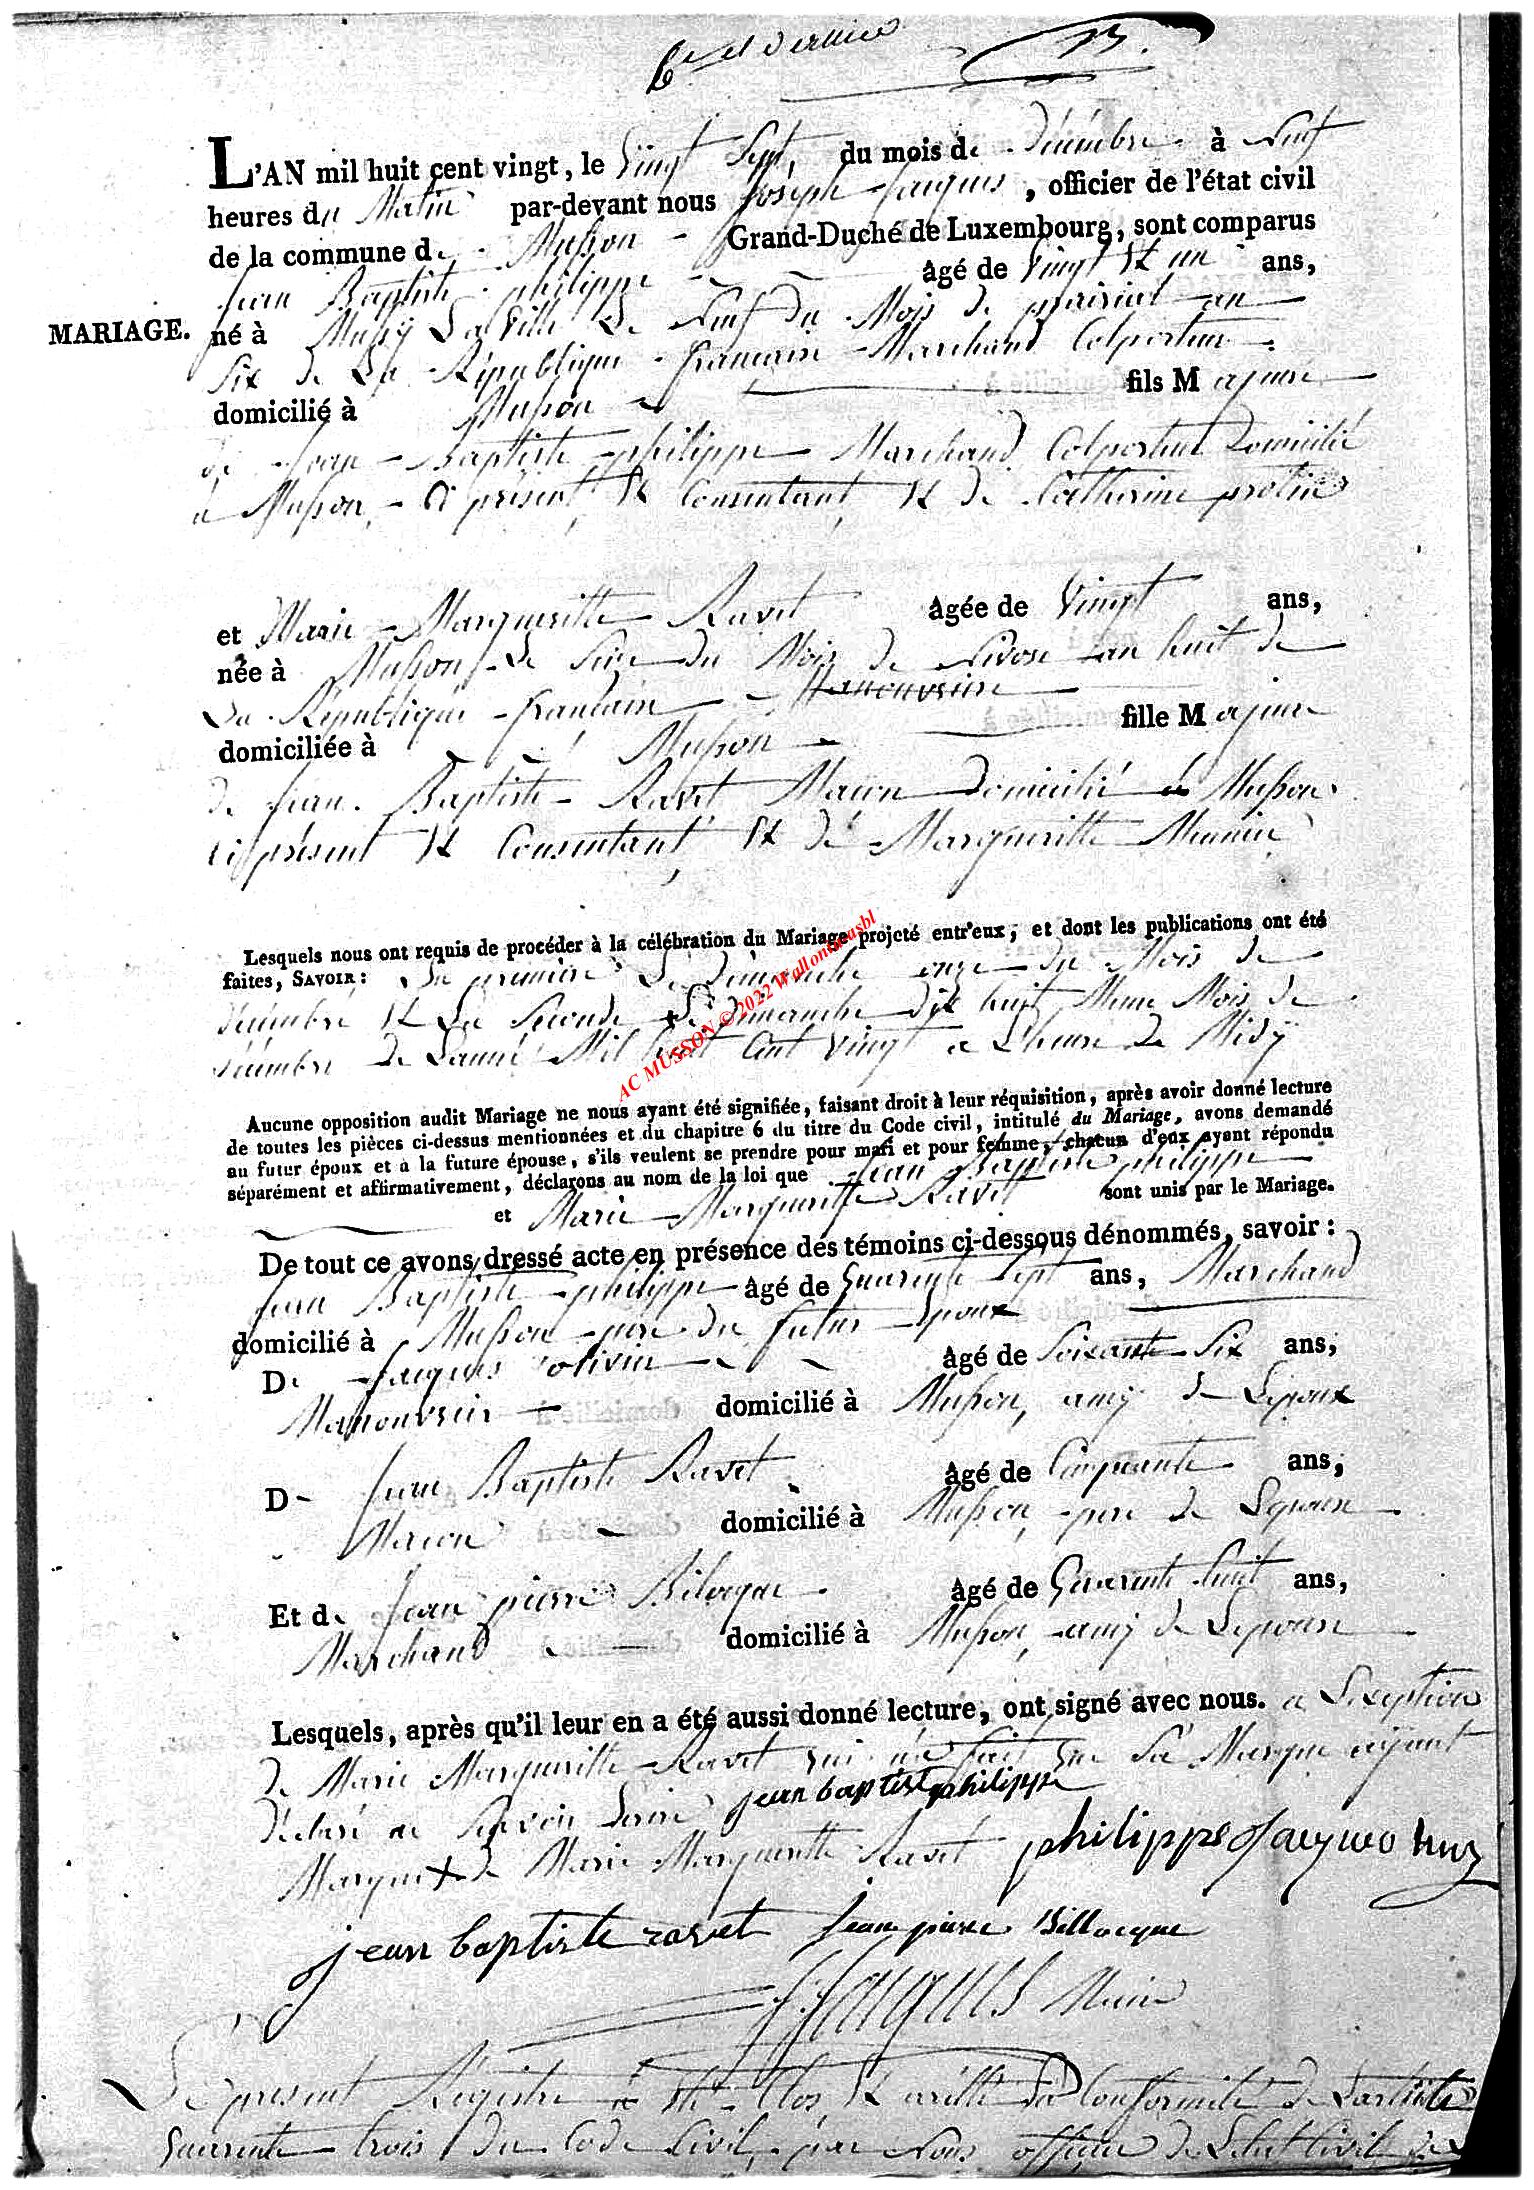 6e et dernier 13.
L'AN mil huit cent vingt, le Vingt Sept, du mois de Décémbre à Neuf
heures du Matin par-devant nous Joséph Jacques, officier de l'état civil
de la commune de Musson Grand-Duché de Luxembourg, sont comparus
Jean Baptiste philippe âgé de Vingt Et un ans,
MARIAGE. né à Mussÿ La Ville Le Neuf du Mois de prairial an
Six de La République francaise Marchand Colporteur
domicilié à Musson fils Majeure
de Jean Baptiste philippe Marchand Colporteur Domicilié
a Musson, Ci présent, Et Consentant, Et de Catherine protin
et Marie Margueritte Ravet âgée de Vingt ans,
née à Musson Le Sixe du Mois de Nivose an huit de
La République francaise Manouvriere
domiciliée à Musson fille Majeure
de Jean Baptiste Ravet Macon Domicilié á Musson
ci présent Et Consentant, Et dé Margueritte
Lesquels nous ont requis de procéder à la célébration du Mariage projeté entr'eux; et dont les publications ont été
faites, SAVOIR: La premiere Le Dimanche onze du Mois de
décémbre Et La Seconde Le Dimanche Dix huit Meme Mois de
décémbre de Lanné Mil huit Cent Vingt a Lheure de Midÿ
AC MUSSON © 2022 Wallonia asbl
Aucune opposition audit Mariage ne nous ayant été signifiée, faisant droit à leur réquisition, après avoir donné lecture
de toutes les pièces ci-dessus mentionnées et du chapitre 6 du titre du Code civil, intitulé du Mariage, avons demandé
au futur époux et à la future épouse, s'ils veulent se prendre pour mari et pour femme, chacun d'eux ayant répondu
séparément et affirmativement, déclarons au nom de la loi que Jean Baptiste philippe
et Marie Margueritte Ravet sont unis par le Mariage.
De tout ce avons dressé acte en présence des témoins ci-dessous dénommés, savoir:
Jean Baptiste philippe âgé de Quarente Sept ans, Marchand
domicilié à Musson pere du futur Epoux
De Jacques âgé de Soixante Six ans,
Manouvrier domicilié à Musson, amÿ de Lepoux
De Jean Baptiste Ravet âgé de Cinquante ans,
Macon domicilié à Musson, pere de Lepouse
Et de Jean pierre Bilocque âgé de Quarente huit ans,
Marchand domicilié à Musson, amÿ de Lepouse
Lesquels, après qu'il leur en a été aussi donné lecture, ont signé avec nous. a Lexeption
de Marie Margueritte Ravet qui n'a fait que Sa Marque aÿant
déclaré ne Scavoir Ecrire jean baptiste philippe
Marque + de Marie Margueritte Ravet philippe Jacques
jean baptiste ravet Jean pierre Billocque
J. Jacques Maire
Le present Registre a Eté Clos, Et arrétté En Conformité de Lartücle
quarente trois du Code Civil, par Nous officier de Létat Civil de